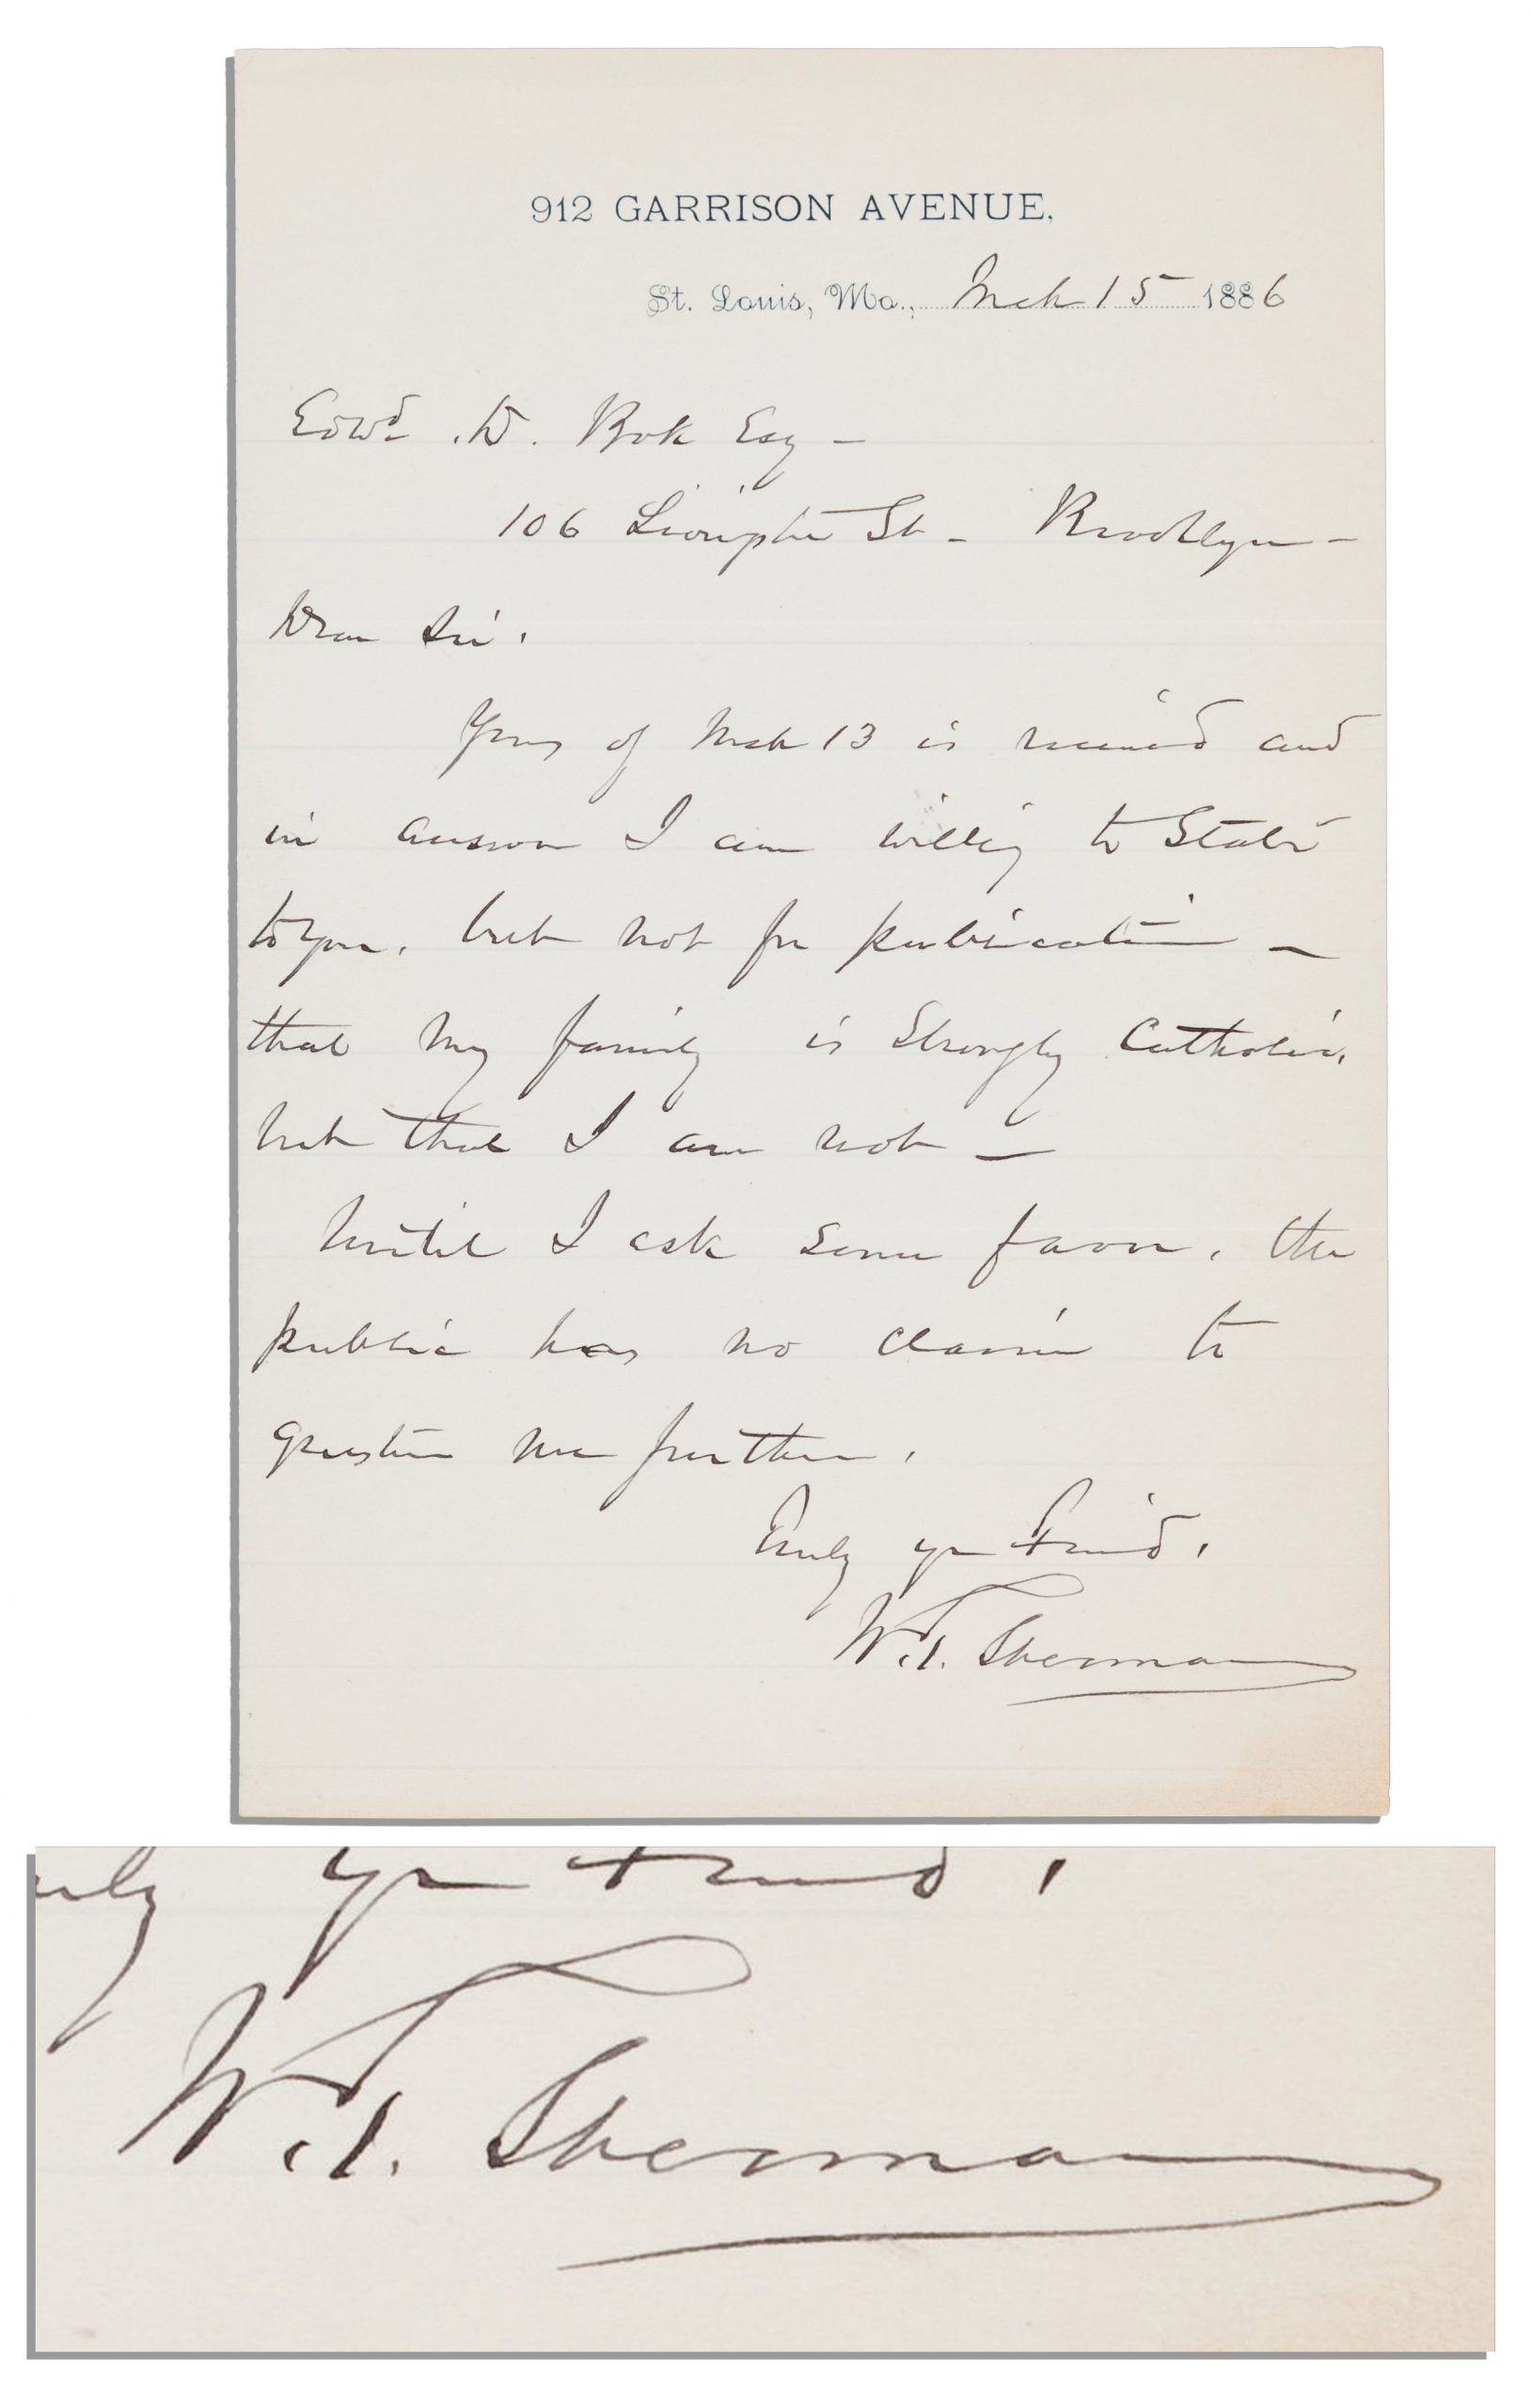 912 GARRISON AVENUE.
St. Louis, Mo., Mch 15 1886
Edwd. W. Bok Esq –
106 St – Brooklyn –
Dear Sir.
Yours of Mch 13 is received and
in answer I am willing to State
to you, but not for publication –
that my family is Strongly Catholic,
but that I am not –
Until I ask some favor, the
public has no claim to
question me further.
Truly yr friend,
W.T. Sherman
yr friend,
W.T. Sherman